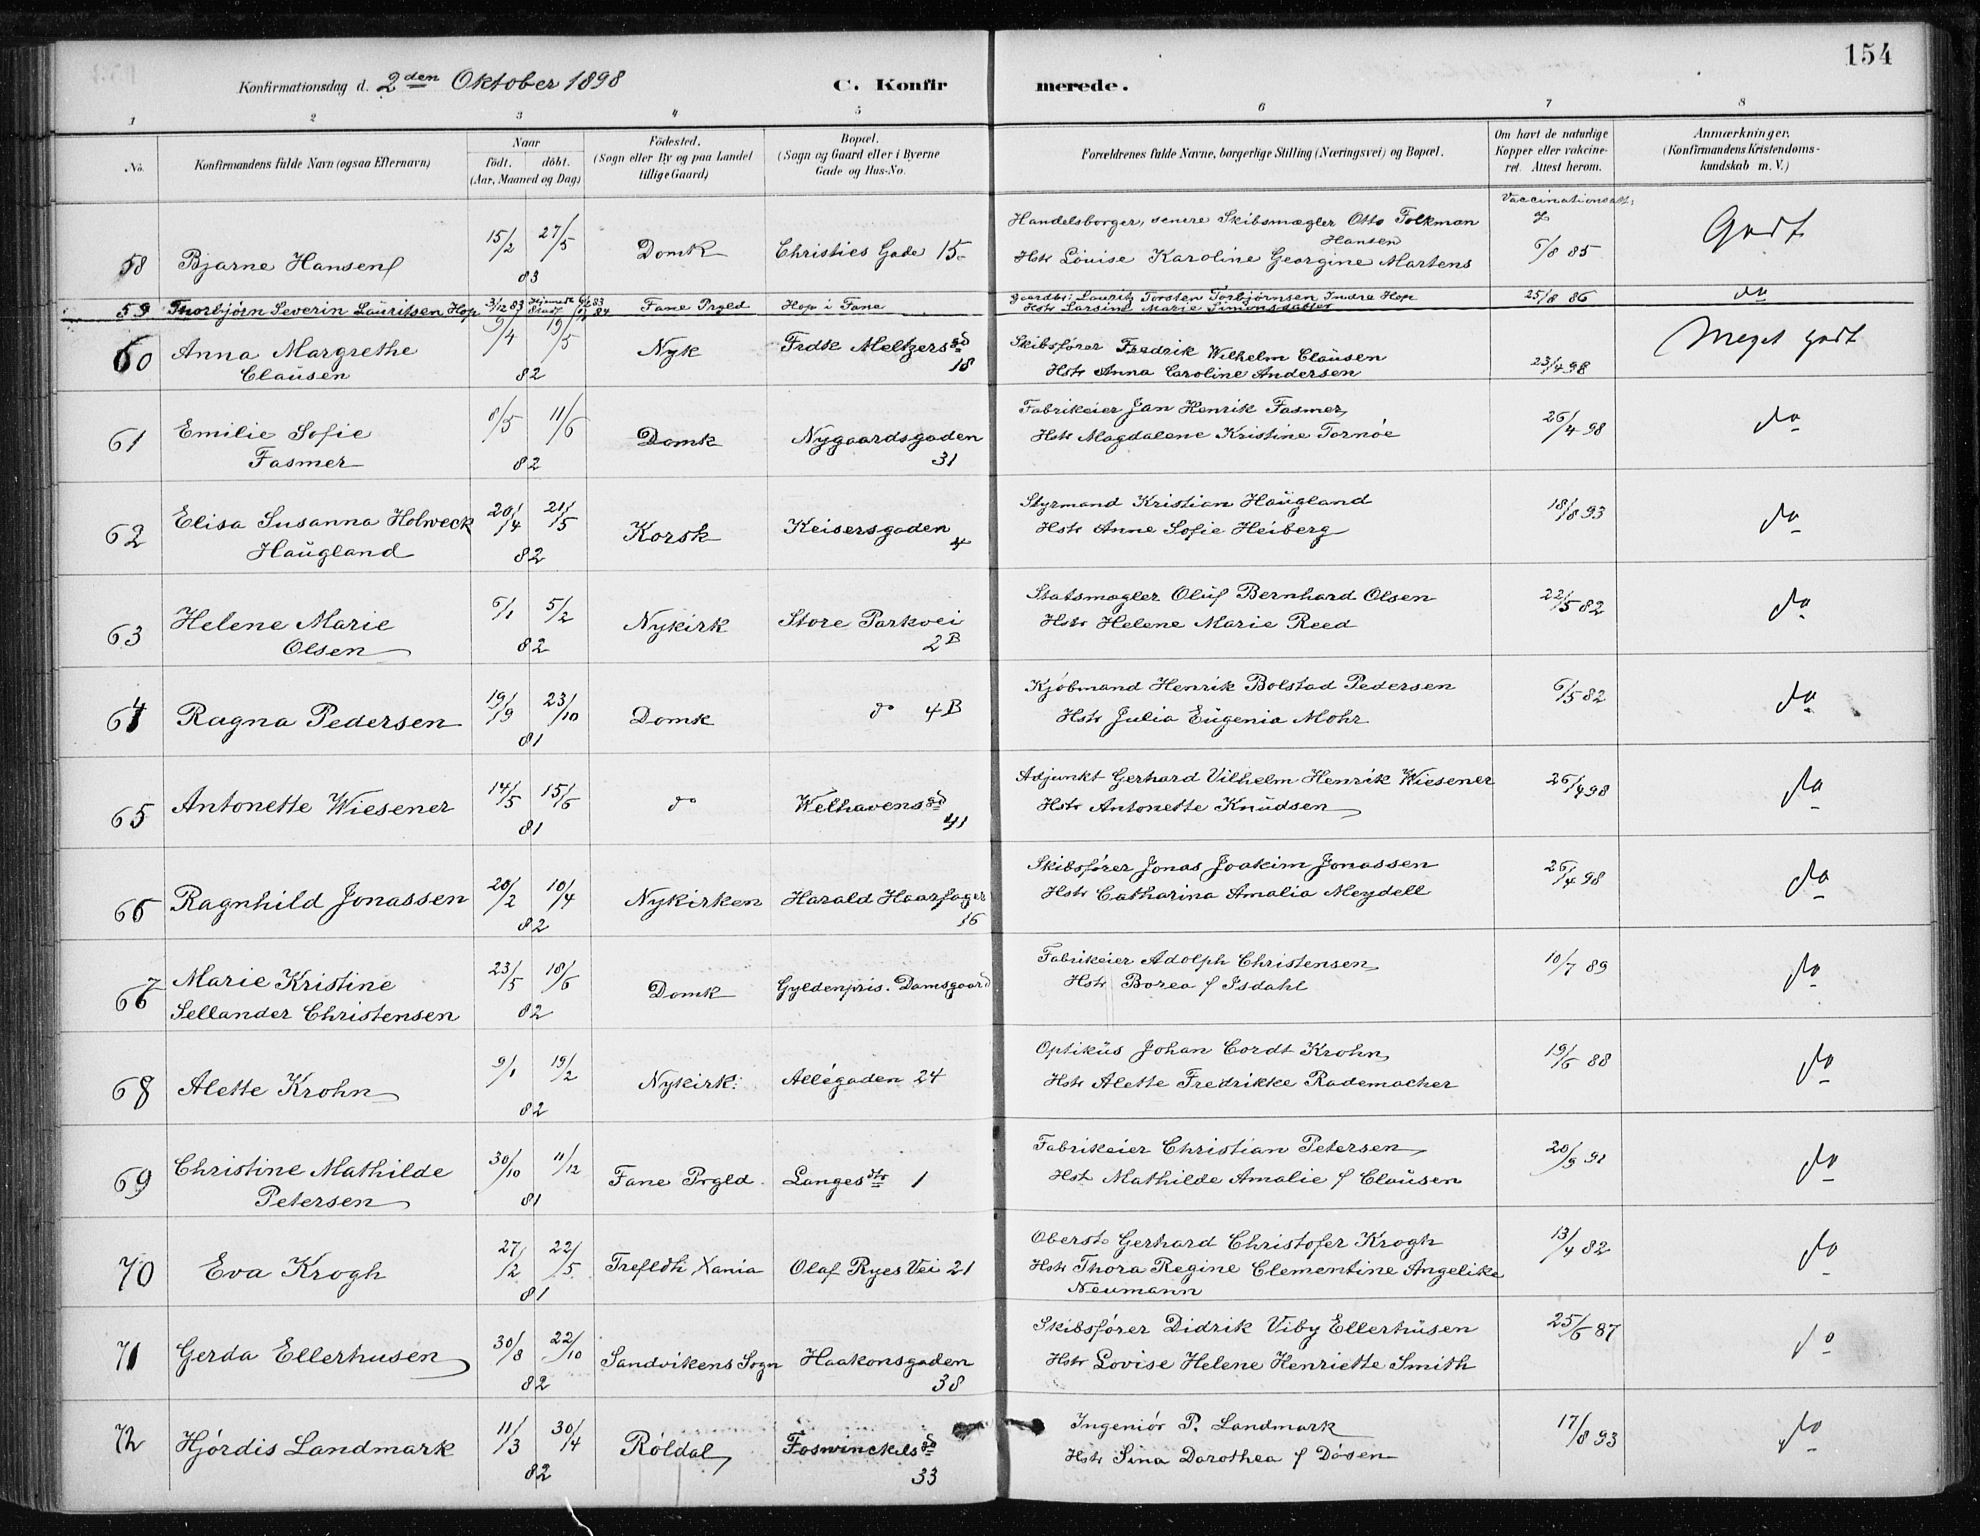 154
Konfirmationsdag d. 2den Oktober 1898
C. Konfir merede.
1 2 3 4 5 6 7 8
No.
Konfirmandens fulde Navn (ogsaa Efternavn)
Naar
födt. döbt.
(Aar, Maaned og Dag)
Födested.
(Sogn eller By og paa Landet
tillige Gaard)
Bopæl.
(Sogn og Gaard eller i Byerne
Gade og Hus-No.
Forældrenes fulde Navne, borgerlige Stilling (Næringsvei) og Bopæl.
Om havt de naturlige
Kopper eller vakcine-
ret. Attest herom.
Anmærkninger.
(Konfirmandens Kristendoms-
kundskab m. V.)
Vaccinationsatt:
58 Bjarne Hansen 15/2 27/5 83 Domk Christies Gade 15
Handelsborger, senere Skibsmægler Otto Folkman
Hansen
Hstr Lovise Karoline Georgine Martens
6/8 85 Godt
59 Thorbjørn Severin Lauritsen Hop 3/12 83 Fane Prgld Hop i Fane
Gaardbr: Lauritz Torsten Torbjørnsen Indre Hop
Hstr Larsine Marie Simonsdatter
25/8 86 do
60 Anna Margrethe
Clausen
9/4 19/5 82 Nyk Frdk Meltzers gd
18
Skibsfører Fredrik Wilhelm Clausen
Hstr Anna Caroline Andersen
23/4 98 Meget godt
61 Emilie Sofie
Fasmer
8/5 11/6 82 Domk Nygaardsgaden
31
Fabrikeier Jan Henrik Fasmer
Hstr Magdalene Kristine Tornøe
26/4 98 do
62 Elisa Susanna Holweck
Haugland
20/4 21/5 82 Korsk Keisersgaden
4
Styrmand Kristian Haugland
Hstr Anne Sofie Heiberg
18/8 93 do
63 Helene Marie
Olsen
6/1 5/2 82 Nykirk Store Parkvei
2B
Statsmægler Oluf Bernhard Olsen
Hstr Helene Marie Reed
22/5 82 do
64 Ragna Pedersen 19/9 23/10 81 Domk do 4B
Kjöbmand Henrik Bolstad Pedersen
Hstr Julia Eugenia Mohr
6/5 82 do
65 Antonette Wiesener 14/5 15/6 81 do Welhavens gd
41
Adjunkt Gerhard Vilhelm Henrik Wiesener
Hstr Antonette Knudsen
26/4 98 do
66 Ragnhild Jonassen 20/2 10/4 82 Nykirken Harald Haarfager
16
Skibsfører Jonas Joakim Jonassen
Hstr Catharina Amalia Meydell
26/4 98 do
67 Marie Kristine
Sellander Christensen
23/5 18/6 82 Domk Gyldenpris. Damsgaard
Fabrikeier Adolph Christensen
Hstr Borea f Isdahl
10/7 89 do
68 Alette Krohn 9/1 19/2 82 Nykirk: Allégaden 24
Optikus Johan Cordt Krohn
Hstr Alette Fredrikke Rademacher
19/6 88 do
69 Christine Mathilde
Petersen
30/10 11/12 81 Fane Prgld. Langes str 1
Fabrikeier Christian Petersen
Hst Mathilde Amalie f Clausen
20/9 91 do
70 Eva Krogh 27/2 22/5 81 Trefldh Xania Olaf Ryes Vei 21
Oberst Gerhard Christofer Krogh
Hstr Thora Regine Clementine Angelike
Neumann
13/4 82 do
71 Gerda Ellerhusen 30/8 22/10 82 Sandvikens Sogn Haakonsgaden
38
Skibsfører Didrik Viby Ellerhusen
Hstr Lovise Helene Henriette Smith
25/6 87 do
72 Hjördis Landmark 11/3 30/4 82 Röldal Foswinckels gd
33
Ingeniör P. Landmark
Hstr Sina Dorothea f Dösen
17/8 93 do